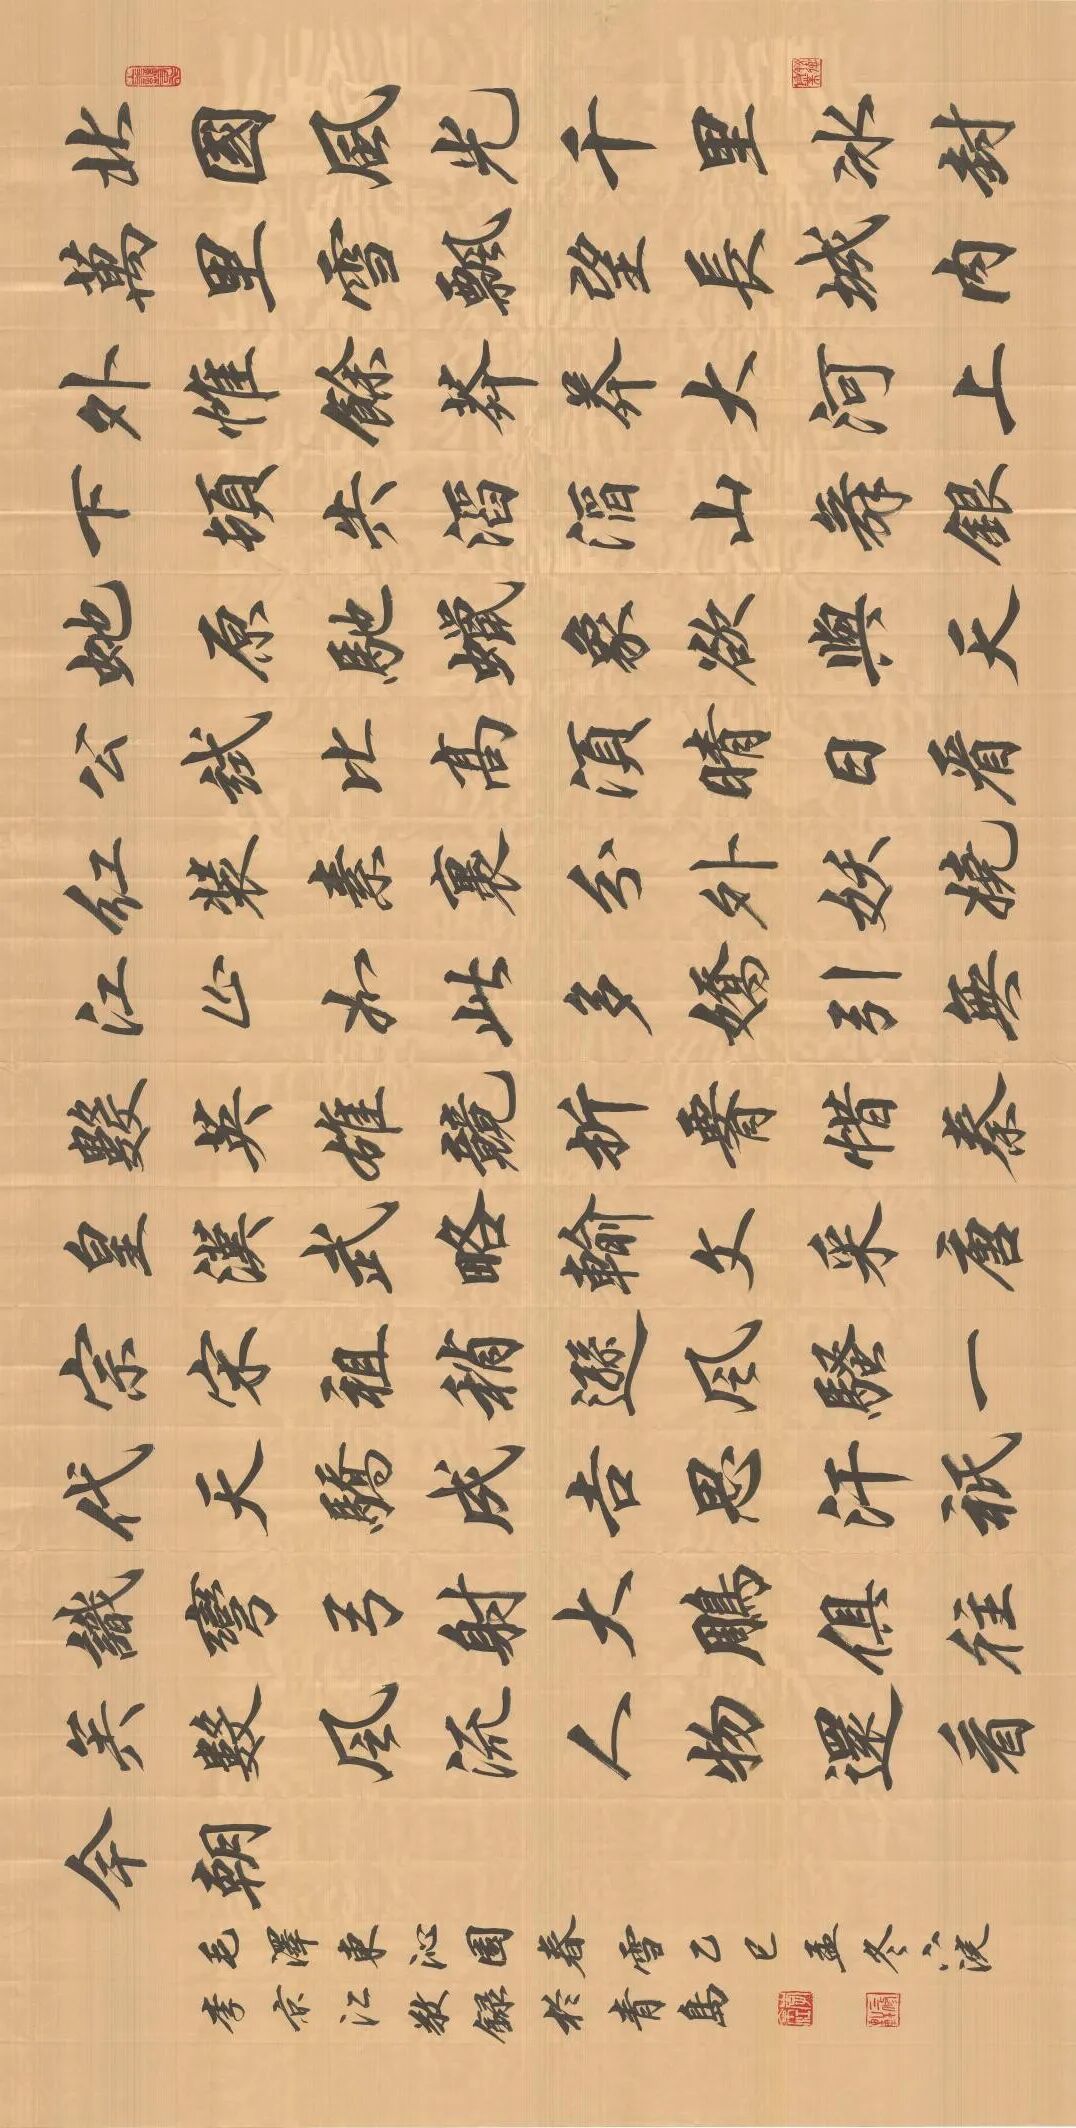 北國風光千里冰封
萬里雪飄望長城内
外惟餘莽莽大河上
下頓失滔滔山舞銀
蛇原馳蠟象欲與天
公試比高須晴日看
紅裝素裹分外妖嬈
江山如此多嬌引無
數英雄競折腰惜秦
皇漢武略輸文采唐
宗宋祖稍遜風騷一
代天驕成吉思汗祇
識彎弓射大鵰俱往
矣數風流人物還看
今朝
毛澤東沁園春雪乙巳孟冬
李京江敬錄於青島